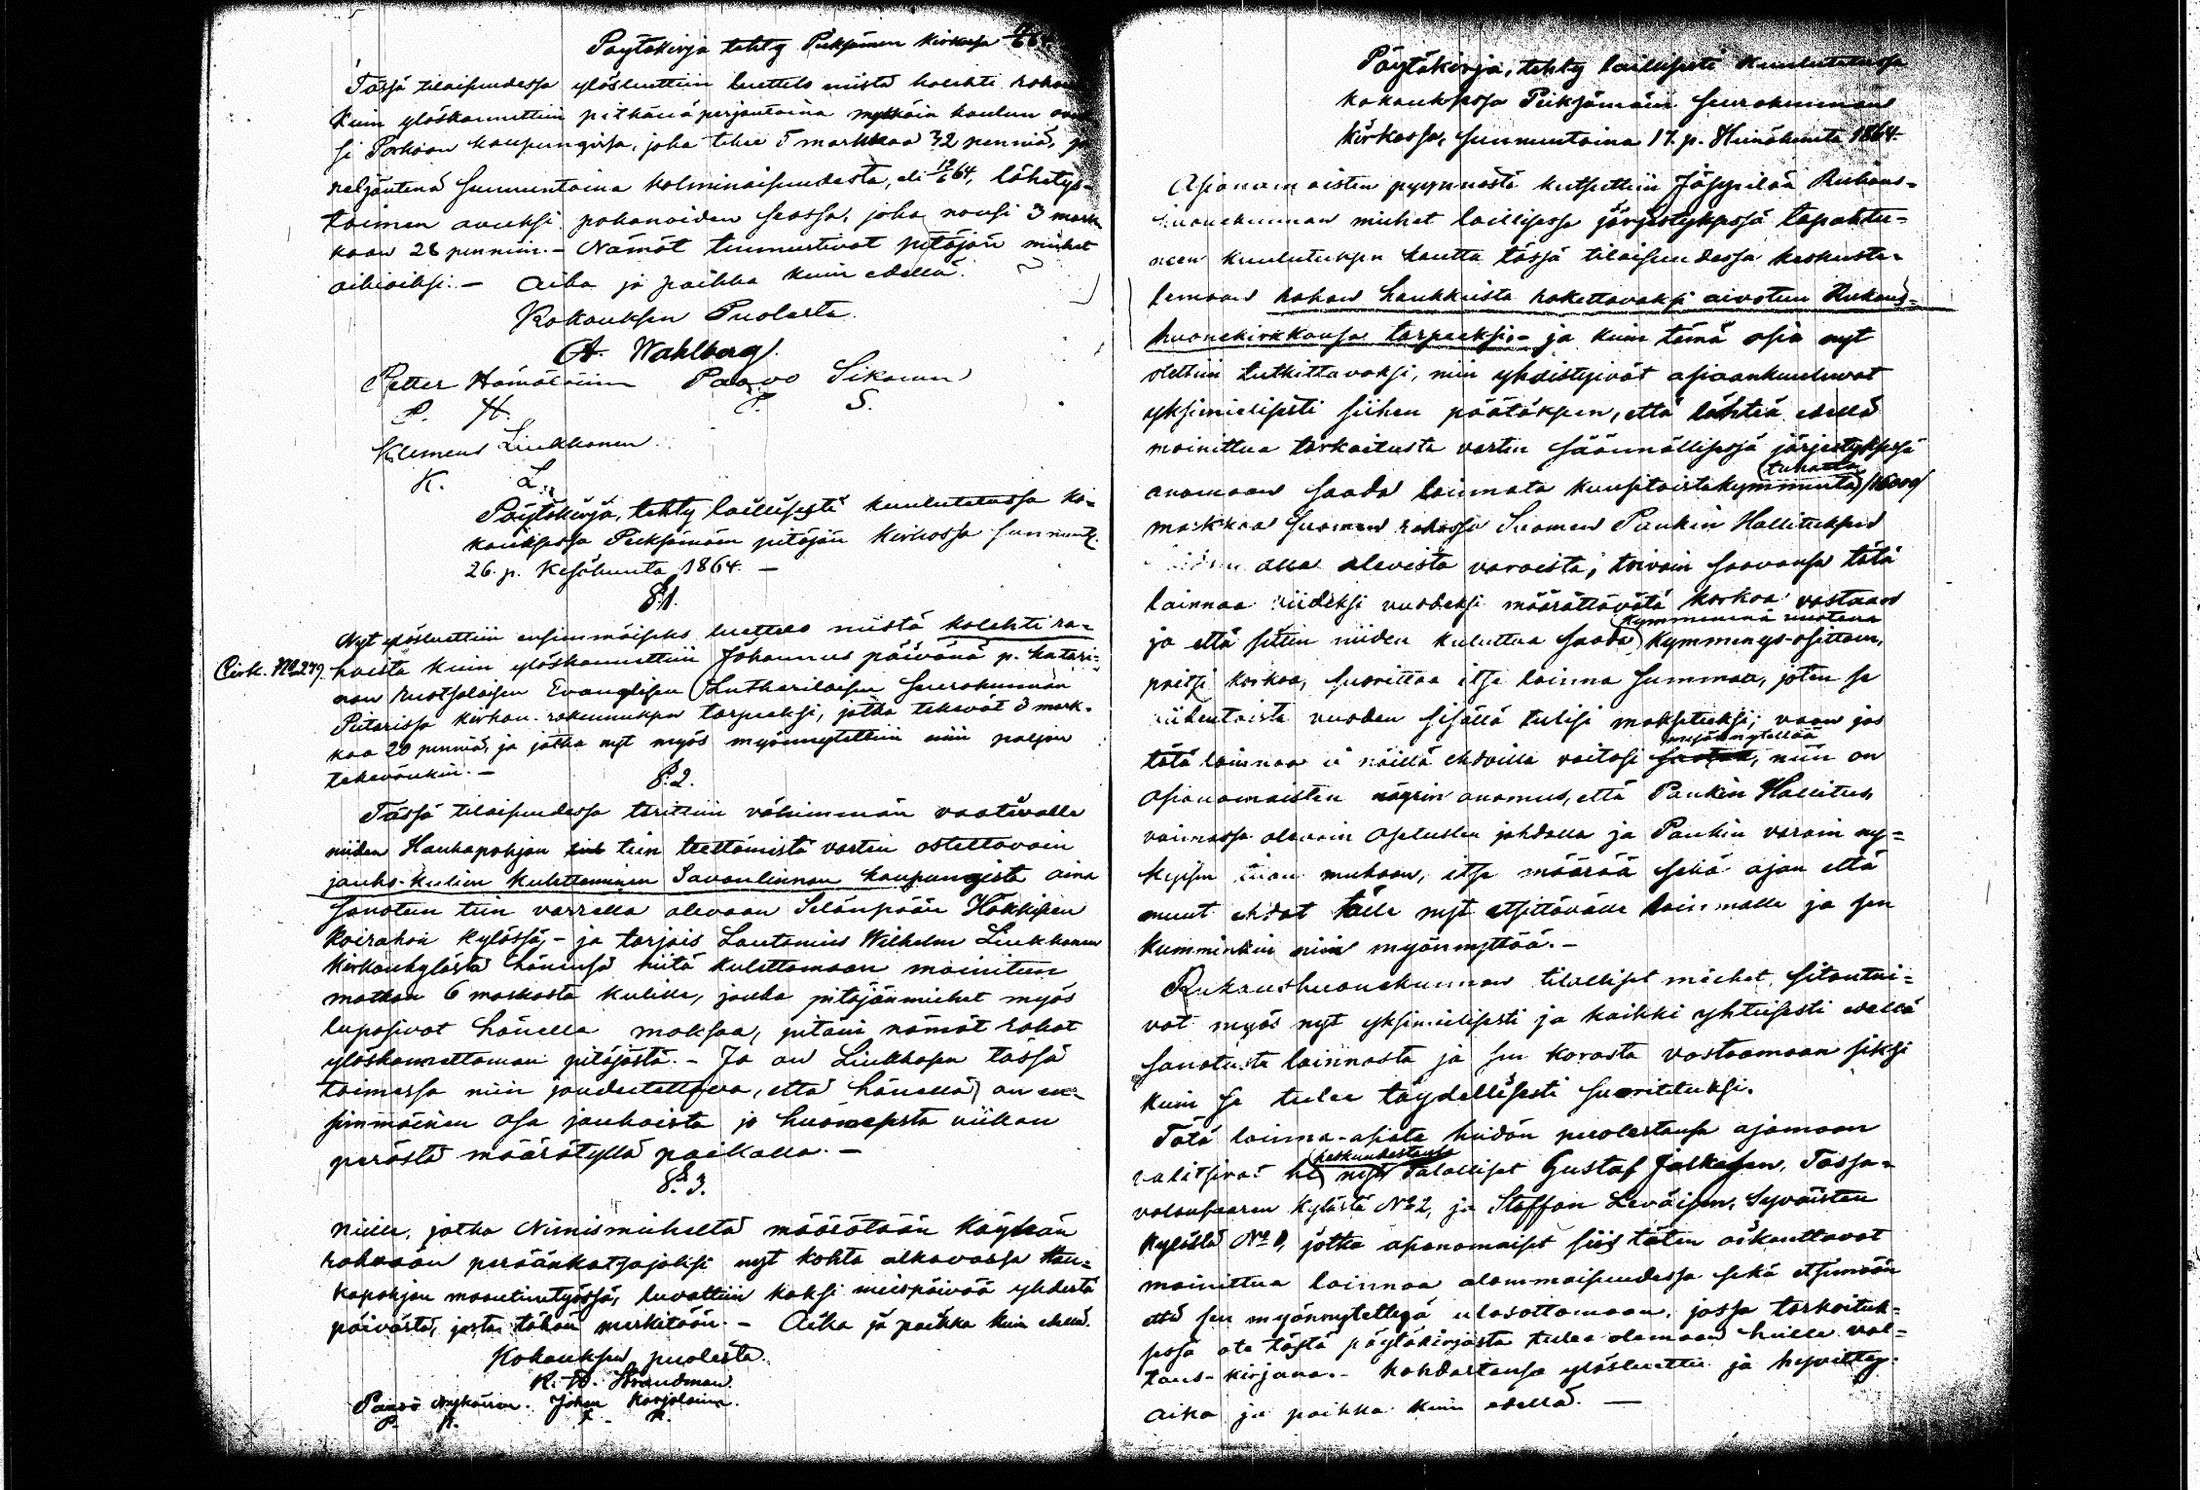 Pöytäkirja tehty Pieksämän kirkossa 19/6 64.
Tässä tilaisuudessa ylösluettiin luettelo niistä kolehti rahoi
kuin ylöskannettiin pitkänä perjantaina mykkäin koulun avu
si Porkoon kaupungissa, joka tekee 5 markkaa 32 penniä, ja
neljäntenä sunnuntaina kolminaisuudesta, eli 19/6 64, lähetys-
toimen avuksi pakanoiden seassa, joka nousi 3 mark
kaan 28 penniin. - Nämät tunnustivat pitäjän miehet
oikioiksi. - Aika ja paikka kuin edellä.
Kokouksen Puolesta
A. Wahlberg.
Petter Hämäläinen Paavo Sikanen
P. H. P. S.
Klemens Liukkonen
K. L.
Pöytäkirja, tehty laillisesti kuulutetussa ko-
kouksessa Pieksämäen pitäjän kirkossa sunnunt.
26. p. Kesäkuuta 1864. -
§.1.
Nyt ylösluettiin ensimmäiseks luettelo niistä kolehti ra-
Cirk. No 279. hoista kuin ylöskannettiin Johannes päivänä p. Katari-
nan Ruotsalaisen Evangelisen Lutherilaisen seurakunnan
Pietarissa kirkon rakennuksen tarpeeksi, jotka tekevät 3 mark-
kaa 20 penniä, ja jotka nyt myös myönnytettiin niin paljon
tekevänkin. -
§.2.
Tässä tilaisuudessa tarittiin vähimmän vaativalle
niiden Haukapohjan tiin teettämistä varten ostettavain
jauho-kulien kulettaminen Savonlinnan kaupungista aina
sanotun tiin varrella olevaan Selänpään Häkkisen
Koirahan kylässä, - ja tarjois Lautamies Wilhelm Liukkonen
Kirkonkylästä hänensä niitä kulettamaan mainitun
matkan 6 markasta kulilta, jonka pitäjänmiehet myös
lupasivat hänelle maksaa, pitäin nämät rahat
ylöskannettaman pitäjästä. - Ja on Liukkosen tässä
toimessa niin jouduttettava, että hänellä on en-
simmäinen osa jauhoista jo huomesesta viikon
perästä määrätyllä paikalla. -
§.3.
Niille, jotka Nimismieheltä määrätään käymään
rahvaan peräänkatsojaksi nyt kohta alkavassa Hau-
kapohjan maantientyössä, luvattiin kaksi miespäivää yhdestä
päivästä, josta tähän merkitään. - Aika ja paikka kuin edellä.
Kokouksen puolesta.
K. W. Strandman.
Paavo Nykäinen. Johan Karjalainen.
P. N. J. K.
Pöytäkirja, tehty laillisesti kuulutetussa
kokouksessa Pieksämäin seurakunnan
kirkossa, sunnuntaina 17. p. Heinäkuuta 1864.
Asianomaisten pyynnöstä kutsuttiin Jäppilän Rukous-
huonekunnan miehet laillisessa järjestyksessä tapahtu-
neen kuulutuksen kautta tässä tilaisuudessa keskuste-
lemaan rahan hankkiista rakettavaksi aivotun Rukous-
huonekirkkonsa tarpeeksi. - ja kuin tämä asia nyt
otettiin tutkittavaksi, niin yhdistyivät asiaankuuluvat
yksimielisesti siihen päätöksen, että lähteä edellä
mainittua tarkoitusta varten säännöllisessä järjestyksessä
tuhatta
anomaan saada lainnata kuusitoistakymmentä /16000/
markkaa Suomen rahassa Suomen Pankin Hallituksen
alla olevista varoista; toivoin saavansa tätä
lainnaa viideksi vuodeksi määrättävätä korkoa vastaan
kymmenenä vuotena
ja että sitten niiden kuluttua saada kymmenys-osittain,
paitsi korkoa, suorittaa itse lainna summan, joten se
viidentoista vuoden sisällä tulisi maksetuksi; vaan jos
myönnytellää
tätä lainnaa ei näillä ehdoilla voitasi saada, niin on
asianomaisten nöyrin anomus, että Pankin Hallitus,
voimassa olevain asetusten johdolla ja Pankin varain ny-
kyisen tilan mukaan, itse määrää sekä ajan että
muut ehdot tälle nyt etsittävälle lainnalle ja sen
kumminkin niin myönnyttää. -
Rukoushuonekunnan tilalliset miehet, sitoutui-
vat myös nyt yksimielisesti ja kaikki yhteisesti edellä
sanotusta lainnasta ja sen korosta vastaamaan siksi
kuin se tulee täydellisesti suoritetuksi.
Tätä lainna-asiata heidän puolestansa ajamaan
keskuudestansa
valitsivat he nyt Talolliset Gustaf Jalkasen, Tossa-
valansaaren kylästä No 2, ja Staffan Leväisen, Syväisten
kylästä No 8, jotka asianomaiset siis täten oikeuttavat
mainittua lainnaa alammaisuudessa sekä etsimään
että sen myönnytettyä ulosottamaan, jossa tarkoituk-
sessa ote tästä pöytäkirjasta tulee olemaan heille val-
tuus-kirjana. - Kohdastansa ylösluettu ja hyvitetty.
Aika ja paikka kuin edellä. -